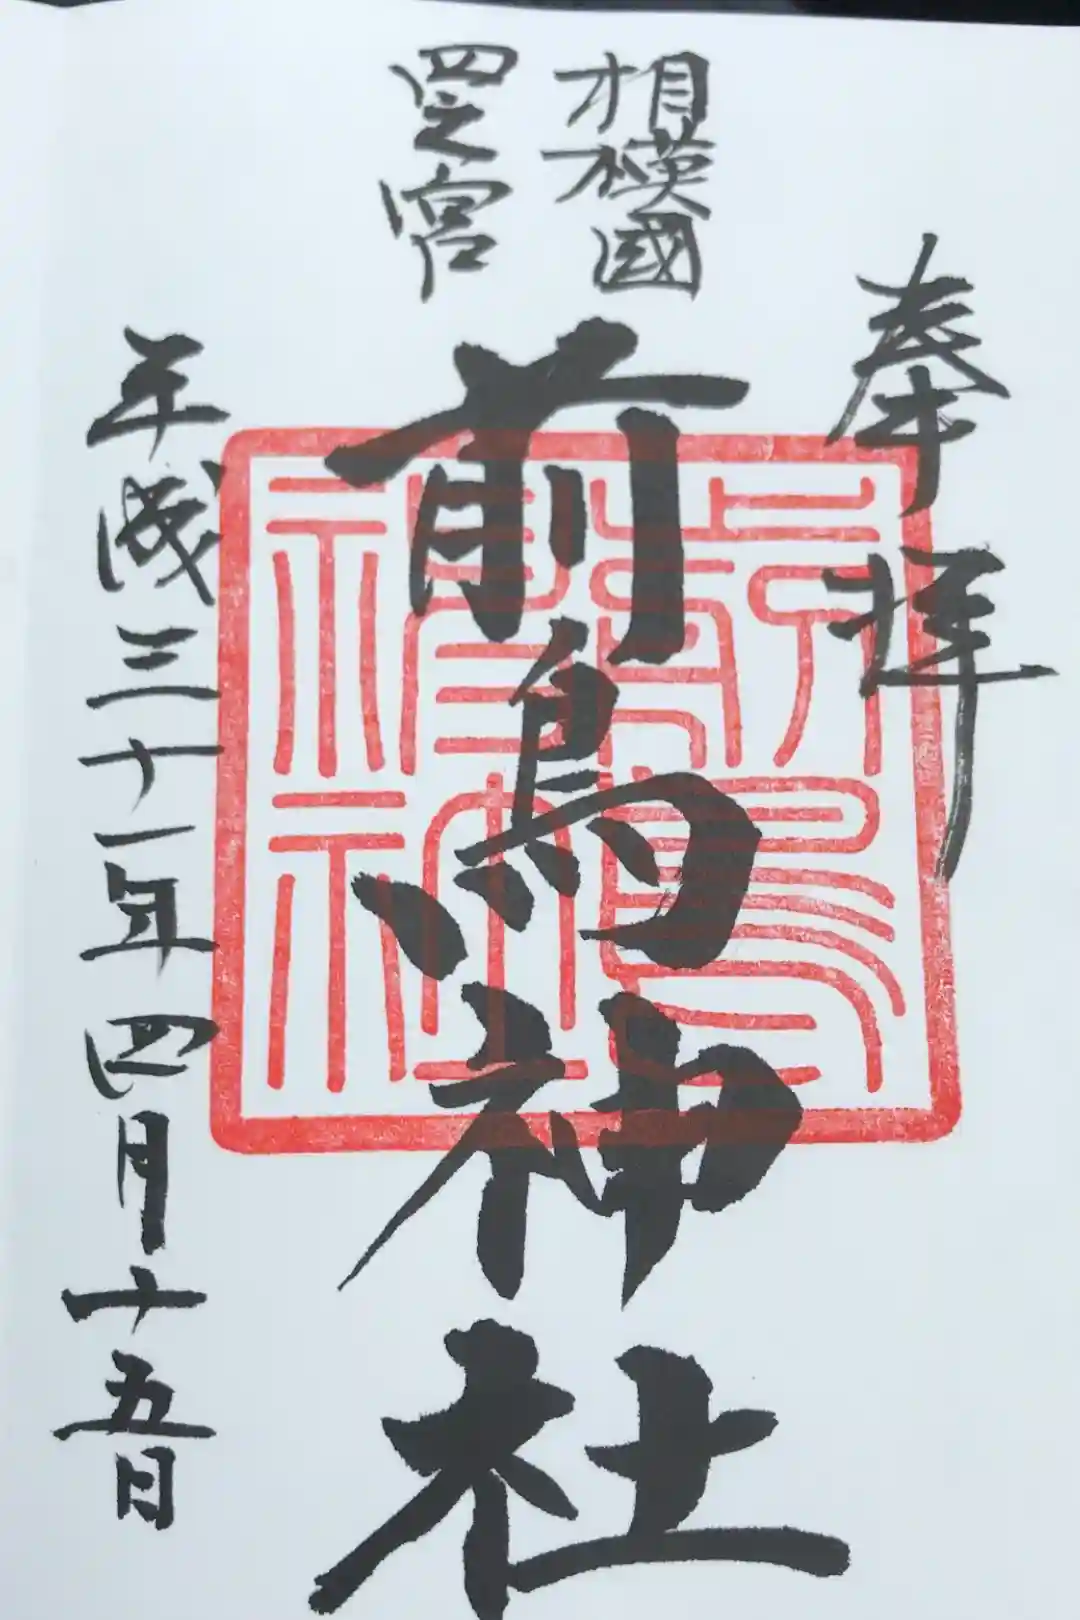 奉拝
相模國
四之宮
前鳥神社
平成三十一年四月十五日